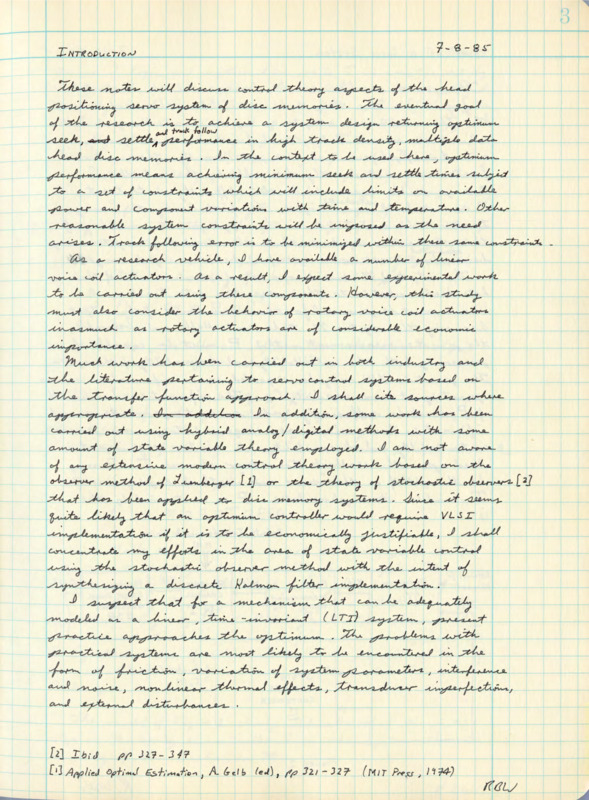 3
INTRODUCTION 7-8-85
These notes will discuss control theory aspects of the head
positioning servo system of disc memories. The eventual goal
of the research is to achieve a system design returning optimum
seek, and settle, and track follow performance in high track density, multiple data
head disc memories. In the context to be used here, optimum
performance means achieving minimum seek and settle times subject
to a set of constraints which will include limits on available
power and component variations with time and temperature. Other
reasonable system constraints will be imposed as the need
arises. Track following error is to be minimized within these same constraints.
As a research vehicle, I have available a number of linear
voice coil actuators. As a result, I expect some experimental work
to be carried out using these components. However, this study
must also consider the behavior of rotary voice coil actuators
inasmuch as rotary actuators are of considerable economic
importance.
Much work has been carried out in both industry and
the literature pertaining to servo control systems based on
the transfer function approach. I shall cite sources where
appropriate. In addition In addition, some work has been
carried out using hybrid analog/digital methods with some
amount of state variable theory employed. I am not aware
of any extensive modern control theory work based on the
observer method of Luenberger [1] or the theory of stochastic observers [2]
that has been applied to disc memory systems. Since it seems
quite likely that an optimum controller would require VLSI
implementation if it is to be economically justifiable, I shall
concentrate my efforts in the area of state variable control
using the stochastic observer method with the intent of
synthesizing a discrete Kalman filter implementation.
I suspect that for a mechanism that can be adequately
modeled as a linear, time-invariant (LTI) system, present
practice approaches the optimum. The problems with
practical systems are most likely to be encountered in the
form of friction, variation of system parameters, interference
and noise, nonlinear thermal effects, transducer imperfections,
and external disturbances.
[2] Ibid pp 327-347
[1] Applied Optimal Estimation, A. Gelb (ed), pp 321-327 (MIT Press, 1974)
RBW